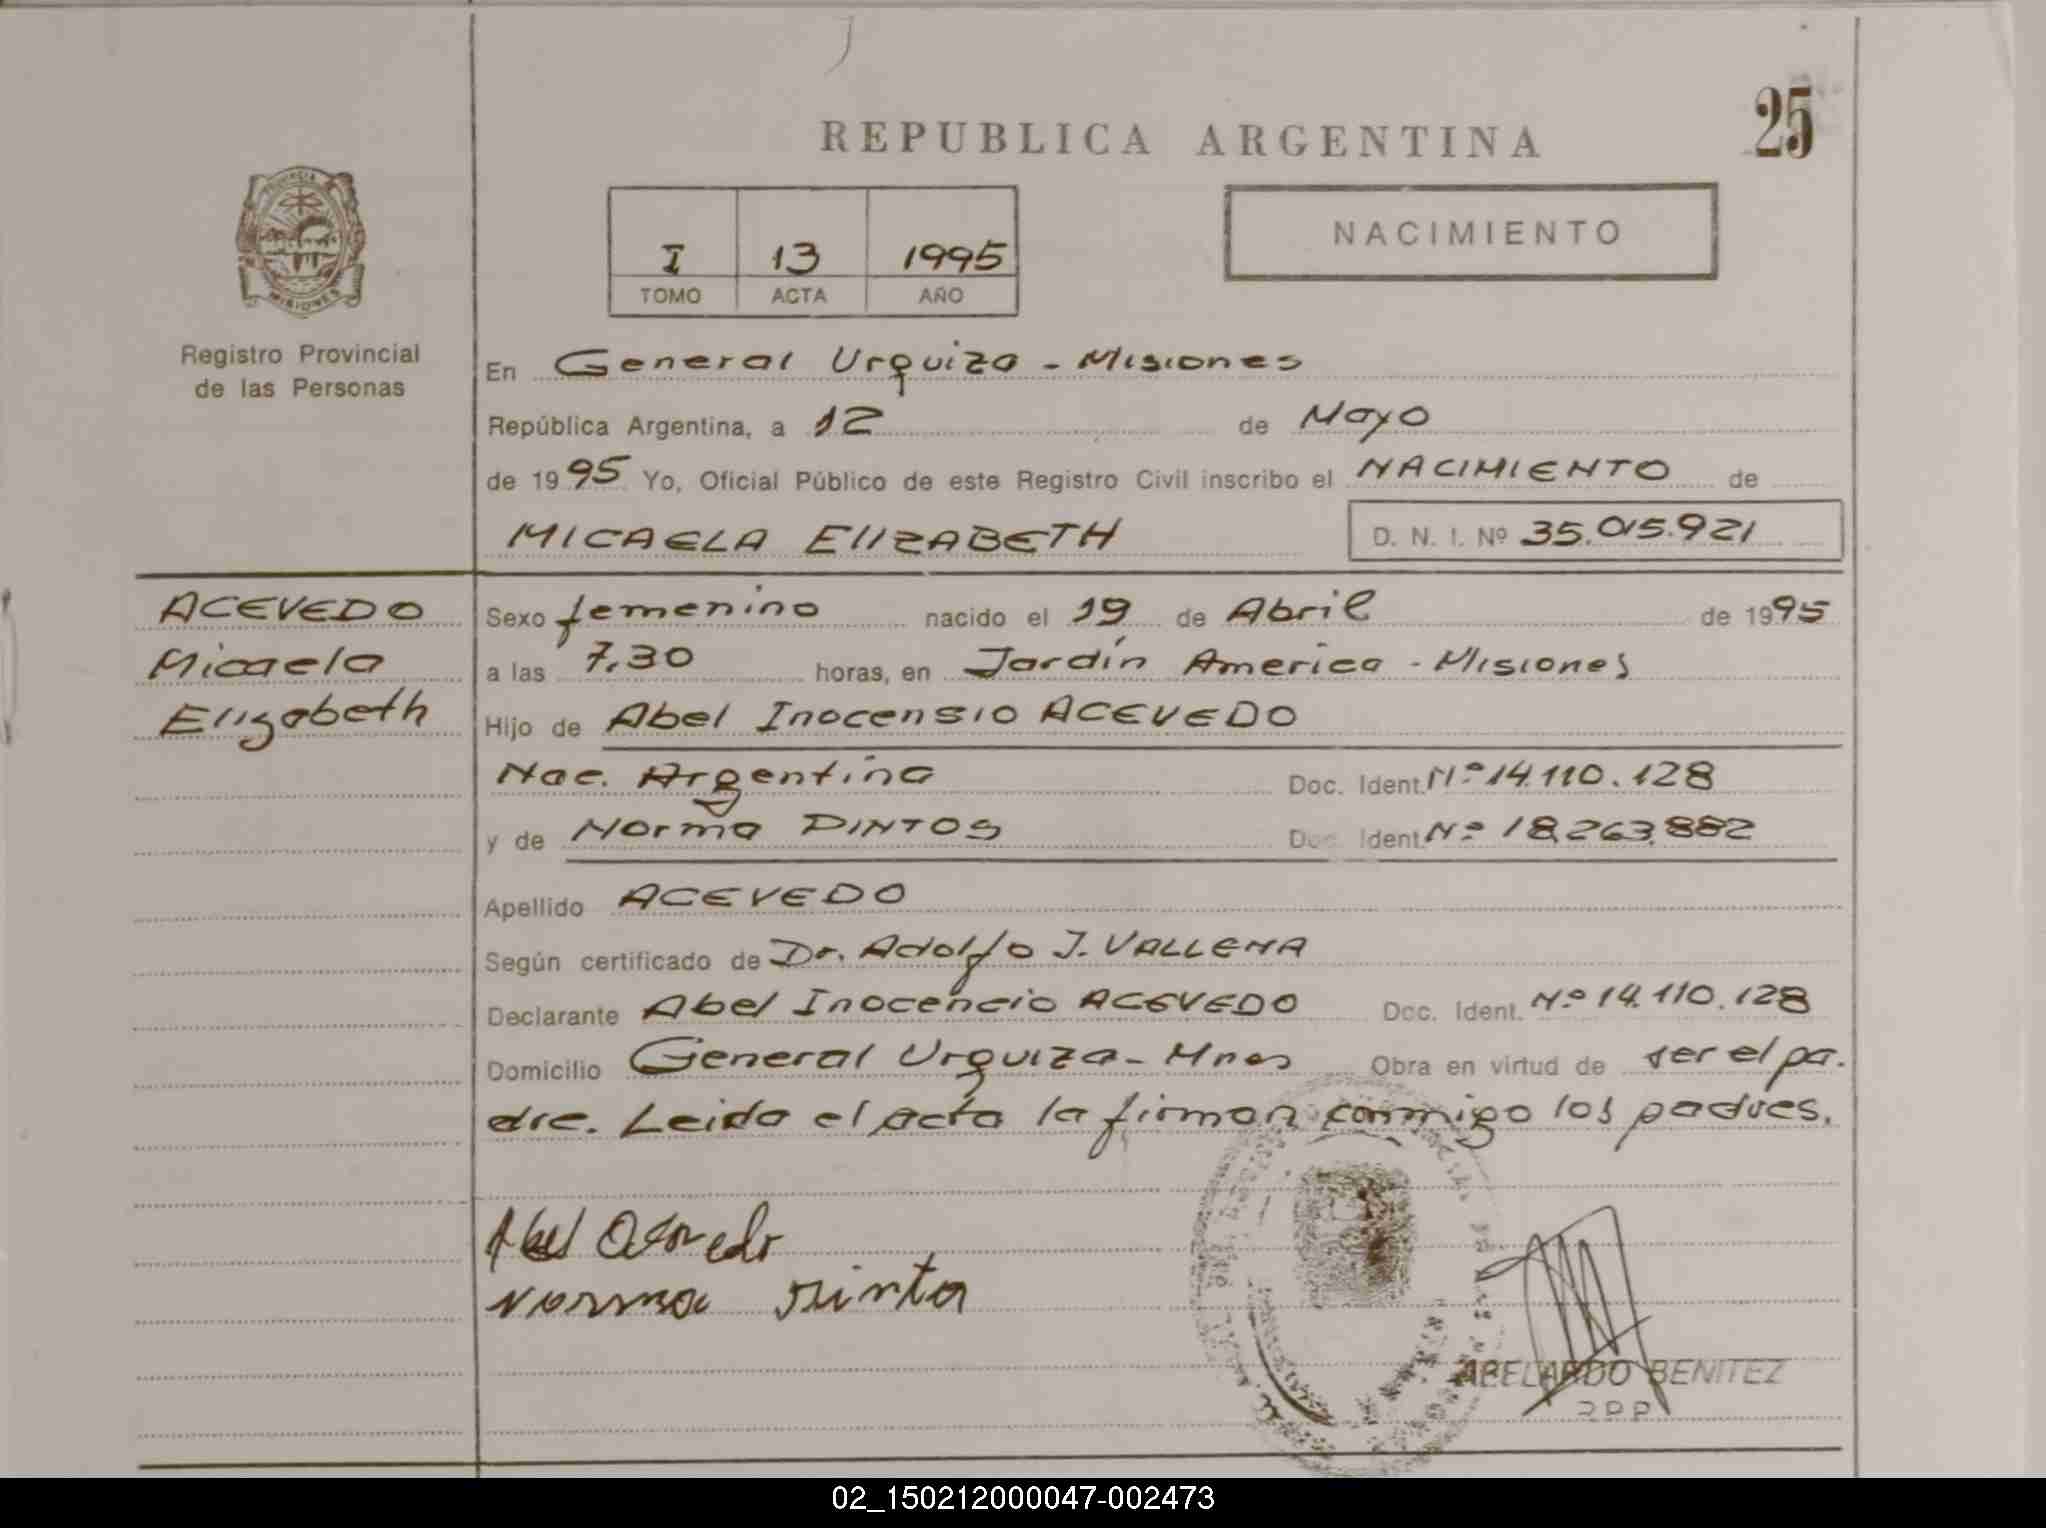 25
REPUBLICA ARGENTINA
PROVINCIA
MISIONES
Registro Provincial
de las Personas
I 13 1995
TOMO ACTA AÑO
NACIMIENTO
En General Urquiza - Misiones
República Argentina, a 12 de Mayo
de 1995 Yo, Oficial Público de este Registro Civil inscribo el NACIMIENTO de
MICAELA ElIZABETH D. N. I. Nº 35.015.921
ACEVEDO
Micaela
Elizabeth
Sexo femenino nacido el 19 de Abril de 1995
a las 7.30 horas, en Jardín America - Misiones
Hijo de Abel Inocensio ACEVEDO
Nac. Argentina Doc. Ident. Nº 14.110.128
y de Norma PINTOS Doc. Ident. Nº 18.263.882
Apellido ACEVEDO
Según certificado de Dr. Adolfo J. VALLENA
Declarante Abel Inocencio ACEVEDO Doc. Ident. Nº 14.110.128
Domicilio General Urquiza - Mnes Obra en virtud de ser el pa.
dre. Leida el acta la firman conmigo los padres.
Abel Acevedo
Norma Pinto
ABELARDO BENITEZ
02_150212000047-002473